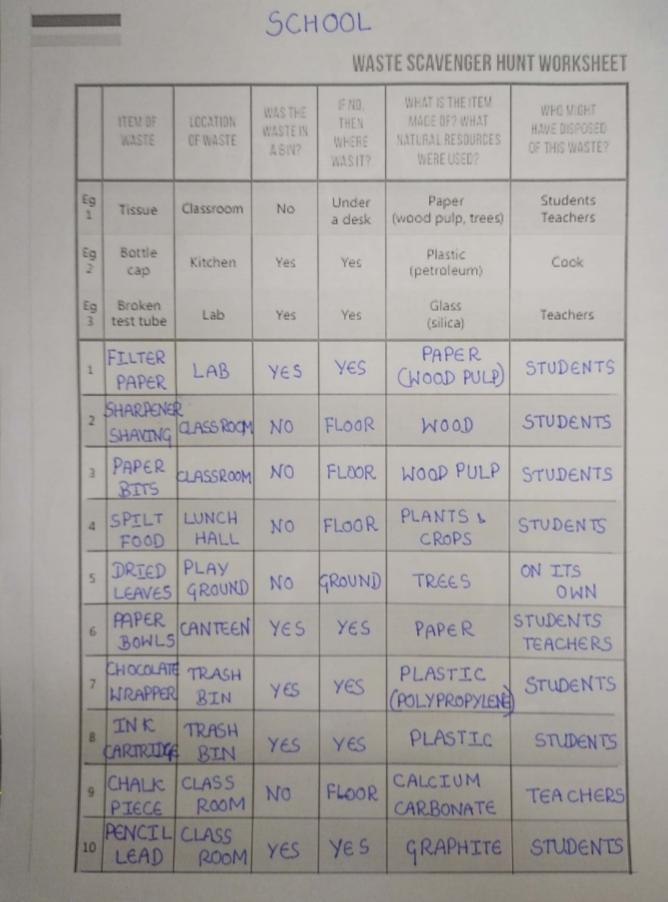 SCHOOL
WASTE SCAVENGER HUNT WORKSHEET
ITEM OF WASTE LOCATION OF WASTE WAS THE WASTE IN A BIN? IF NO, THEN WHERE WAS IT? WHAT IS THE ITEM MADE OF? WHAT NATURAL RESOURCES WERE USED? WHO MIGHT HAVE DISPOSED OF THIS WASTE?
Eg 1 Tissue Classroom No Under a desk Paper (wood pulp, trees) Students Teachers
Eg 2 Bottle cap Kitchen Yes Yes Plastic (petroleum) Cook
Eg 3 Broken test tube Lab Yes Yes Glass (silica) Teachers
1 FILTER PAPER LAB YES YES PAPER (WOOD PULP) STUDENTS
2 SHARPENER SHAVING CLASSROOM NO FLOOR WOOD STUDENTS
3 PAPER BITS CLASSROOM NO FLOOR WOOD PULP STUDENTS
4 SPILT FOOD LUNCH HALL NO FLOOR PLANTS & CROPS STUDENTS
5 DRIED LEAVES PLAY GROUND NO GROUND TREES ON ITS OWN
6 PAPER BOWLS CANTEEN YES YES PAPER STUDENTS TEACHERS
7 CHOCOLATE WRAPPER TRASH BIN YES YES PLASTIC (POLYPROPYLENE) STUDENTS
8 INK CARTRIDGE TRASH BIN YES YES PLASTIC STUDENTS
9 CHALK PIECE CLASS ROOM NO FLOOR CALCIUM CARBONATE TEACHERS
10 PENCIL LEAD CLASS ROOM YES YES GRAPHITE STUDENTS